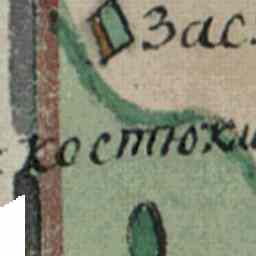 Зас.
костюхи